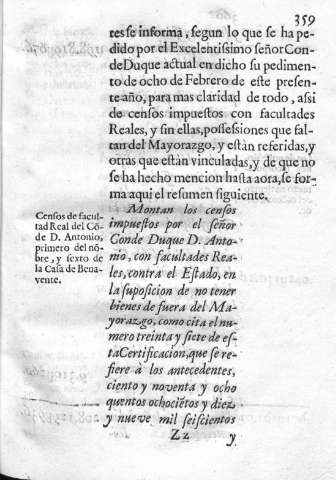 359
tes se informa, segun lo que se ha pe-
dido por el Excelentissimo señor Con-
de Duque actual en dicho su pedimen-
to de ocho de Febrero de este presen-
te año, para mas claridad de todo, assi
de censos impuestos con facultades
Reales, y sin ellas, possessiones que fal-
tan del Mayorazgo, y estàn referidas, y
otras que estàn vinculadas, y de que no
se ha hecho mencion hasta aora, se for-
ma aqui el resumen siguiente.
Censos de facul-
tad Real del Cō-
de D. Antonio,
primero del nō-
bre, y sexto de
la Casa de Bena-
vente.
Montan los censos
impuestos por el señor
Conde Duque D. Anto-
nio, con facultades Rea-
les, contra el Estado, en
la suposicion de no tener
bienes de fuera del Ma-
yorazgo, como cita el nu-
mero treinta y siete de es-
ta Certificacion, que se re-
fiere à los antecedentes,
ciento y noventa y ocho
quentos ochociētos y diez
y nueve mil seiscientos
Zz
y